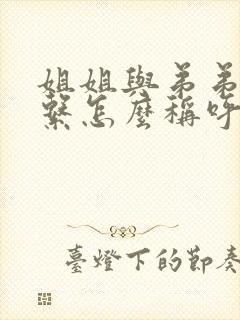 姐姐與弟弟
繫怎麼稱呼
臺燈下的節奏